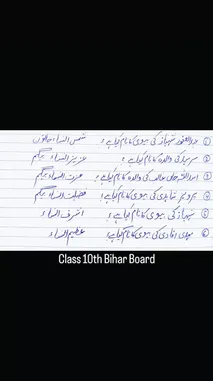 ① عبدالغفور شہباز کی بیوی کا نام کیا ہے؟ شمس النساء خاتون
② سرسید کی والدہ کا نام کیا ہے؟ عزیز النساء بیگم
③ کی والدہ کا نام کیا ہے؟ عزت النساء بیگم
④ پرویز شاہدی کی بیوی کا نام کیا ہے؟ فضیلت النساء بیگم
⑤ شہباز کی بیوی کا نام کیا ہے؟ اشرف النساء
⑥ مہدی افادی کی بیوی کا نام کیا ہے؟ عظیم النساء
Class 10th Bihar Board